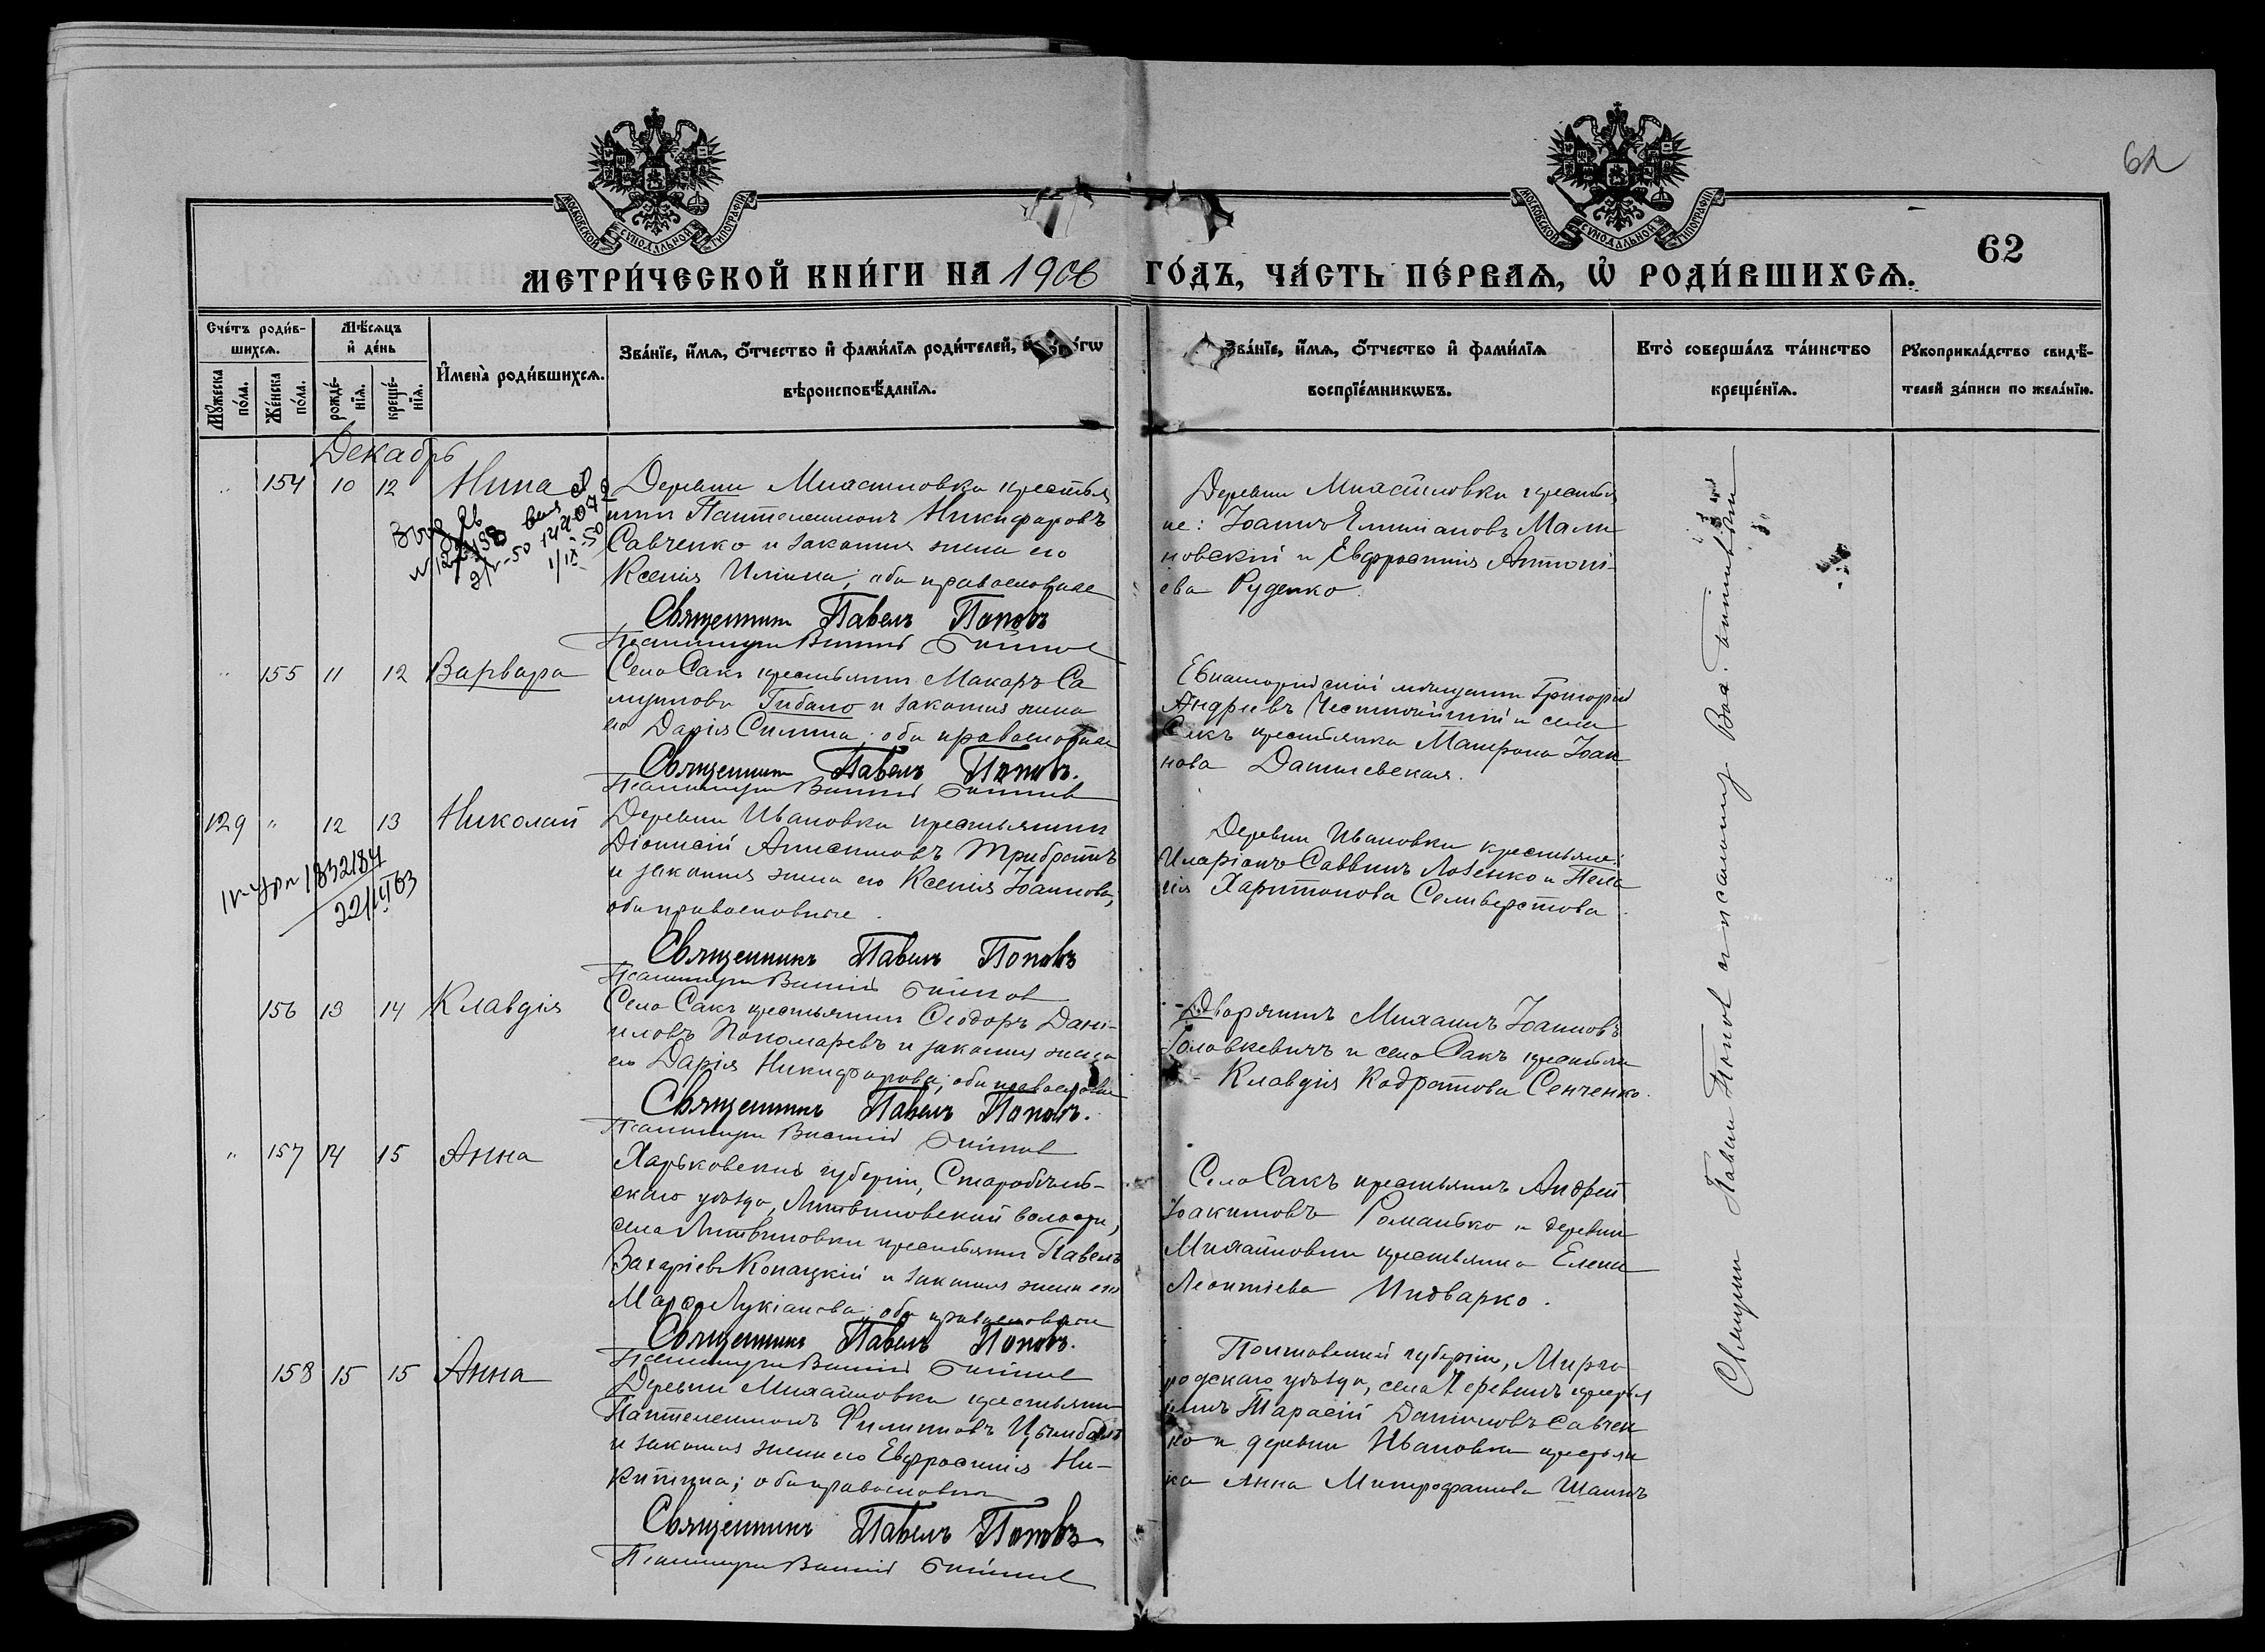 62
МОСКОВСКОЙ СѴНОДАЛЬНОЙ ТИПОГРАФІИ
МОСКОВСКОЙ СѴНОДАЛЬНОЙ ТИПОГРАФІИ
62
МЕТРИ́ЧЕСКОЙ КНИ́ГИ НА 1906 ГО́ДЪ, ЧА́СТЬ ПЕ́РВАѦ, Ѡ҆ РОДИ́ВШИХСѦ.
Сче́тъ роди́в-
шихсѧ.
Мꙋ́жеска
по́ла.
Же́нска
по́ла.
Мѣ́сѧцъ
и҆ де́нь
рожде́-
нїѧ.
креще́-
нїѧ.
И҆мена̀ роди́вшихсѧ.
Зва́нїе, и҆́мѧ, ѻ҆́тчество и҆ фами́лїѧ роди́телей,
вѣроисповѣ́данїѧ.
Зва́нїе, и҆́мѧ, ѻ҆́тчество и҆ фами́лїѧ
воспрїе́мникѡвъ.
Кто̀ соверша́лъ та́инство
креще́нїѧ.
Рꙋкоприкла́дство свидѣ́-
телей за́писи по жела́нїю.
Декабрь
154 10 12 Нина
Деревни Михайловки крестья
нинъ Пантелеимонъ Никифоровъ
Савченко и законная жена его
Ксенія Ильина; оба православные
Священникъ Павелъ Поповъ
Псаломщикъ
Деревни Михайловки крестья
не: Іоаннъ Емилiановъ Мали
новскій и Евфросинія Антоні-
ева Руденко.
" 155 11 12 Варвара
Село Сакъ крестьянинъ Макаръ Са
муиловъ Гибало и законная жена
его Дарія Силина; оба православные
Священникъ Павелъ Поповъ.
Псаломщикъ
Евпаторійскій мѣщанинъ Григорій
Андреевъ и села
Сакъ крестьянка Матрона Іоан
нова Данилевская.
129 " 12 13 Николай
1832184
22/III 63
Деревни Ивановки крестьянинъ
Діонисій Анисимовъ Трибратъ
и законная жена его Ксенія Іоаннова;
оба православные.
Священникъ Павелъ Поповъ
Псаломщикъ
Деревни Ивановки крестьяне:
Иларіонъ Саввинъ Лозенко и Пела
гія Харитонова Селиверстова.
156 13 14 Клавдія
Село Сакъ крестьянинъ Ѳеодоръ Дані-
иловъ Пономаревъ и законная жена
его Дарія Никифорова; оба православные
Священникъ Павелъ Поповъ.
Псаломщикъ
Дворянинъ Михаилъ Іоанновъ
Головкевичъ и село Сакъ крестьян
Клавдія Кодратова Сенченко.
" 157 14 15 Анна
Харьковской губерніи, Старобѣль-
скаго уѣзда, Литвиновской волости,
села Литвиновки крестьянинъ Павелъ
Захаріевъ Копацкій и законная жена его
Марѳа Лукіанова; оба православные
Священникъ Павелъ Поповъ.
Псаломщикъ
Село Сакъ крестьянинъ Андрей
Іоакимовъ Романько и деревни
Михайловки крестьянка Елена
Леонтіева
158 15 15 Анна
Деревни Михайловки крестьянинъ
Пантелеимонъ Филиповъ Цымбалъ
и законная жена его Евфросинія Ни-
китина; оба православные
Священникъ Павелъ Поповъ
Псаломщикъ
Полтавской губерніи, Мирго
родскаго уѣзда, села крестья
нинъ Тарасій Даніиловъ Савчен
ко и деревни Ивановки крестьян
ка Анна Митрофанова
Священникъ Павелъ Поповъ и псаломщ.